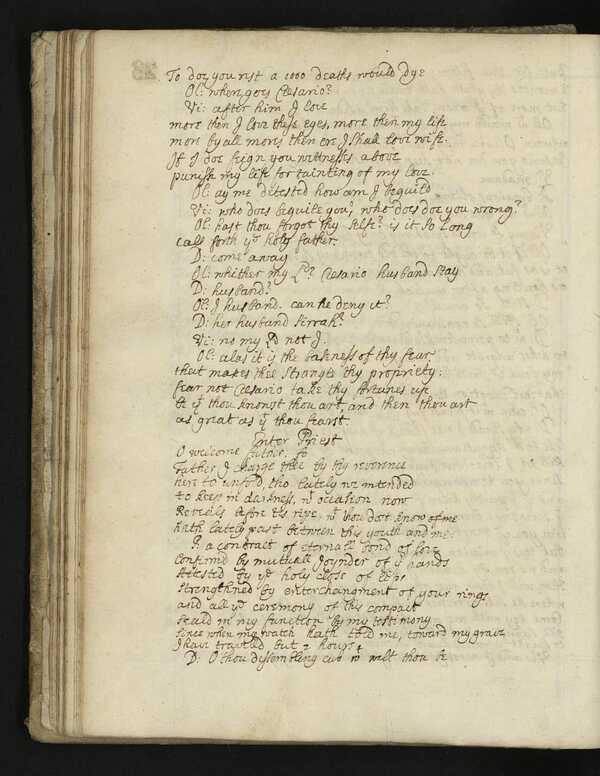 To doe you rest a 1000 deaths would dye
Ol: where goes Cesario?
Vi: after him I love
more then I love these eyes, more then my life
more by all mores then ere I shall love wife.
If I doe feign you wittnesses above
punish my life for tainting of my love.
Ol: ay me detested how am I beguild
Vi: who does beguile you? who does doe you wrong?
Ol: hast thou forgot thy selfe? is it so long
call forth ye holy father.
D: come away
Ol: whither my Ld? Cesario husband stay
D: husband?
Ol: I husband. can he deny it?
D: her husband sirrah?
Vi: no my Ld not I.
Ol: alas it is the baseness of thy fear
that makes thee strangle thy propriety:
fear not Cesario take thy fortunes up
be yt thou knowst thou art, and then thou art
as great as yt thou fearst.
Enter Priest
O welcome father.
Father I charge thee by thy reverence
here to unfold, tho lately we intended
to keep in darkness, wt occasion now
Reveils before tis ripe, wt thou dost know of me
hath lately past between this youth and me.
P. a contract of eternall bond of love
Confirmd by mutuall Joynder of yr hands
Attested by ye holy close of lips
Strengthned by enterchangment of your rings
and all ye ceremony of this compact
seald in my function by my testimony
since when my watch hath told me, toward my grave
I have travelld but 2 hours
D: O thou dissembling cub wt wilt thou be